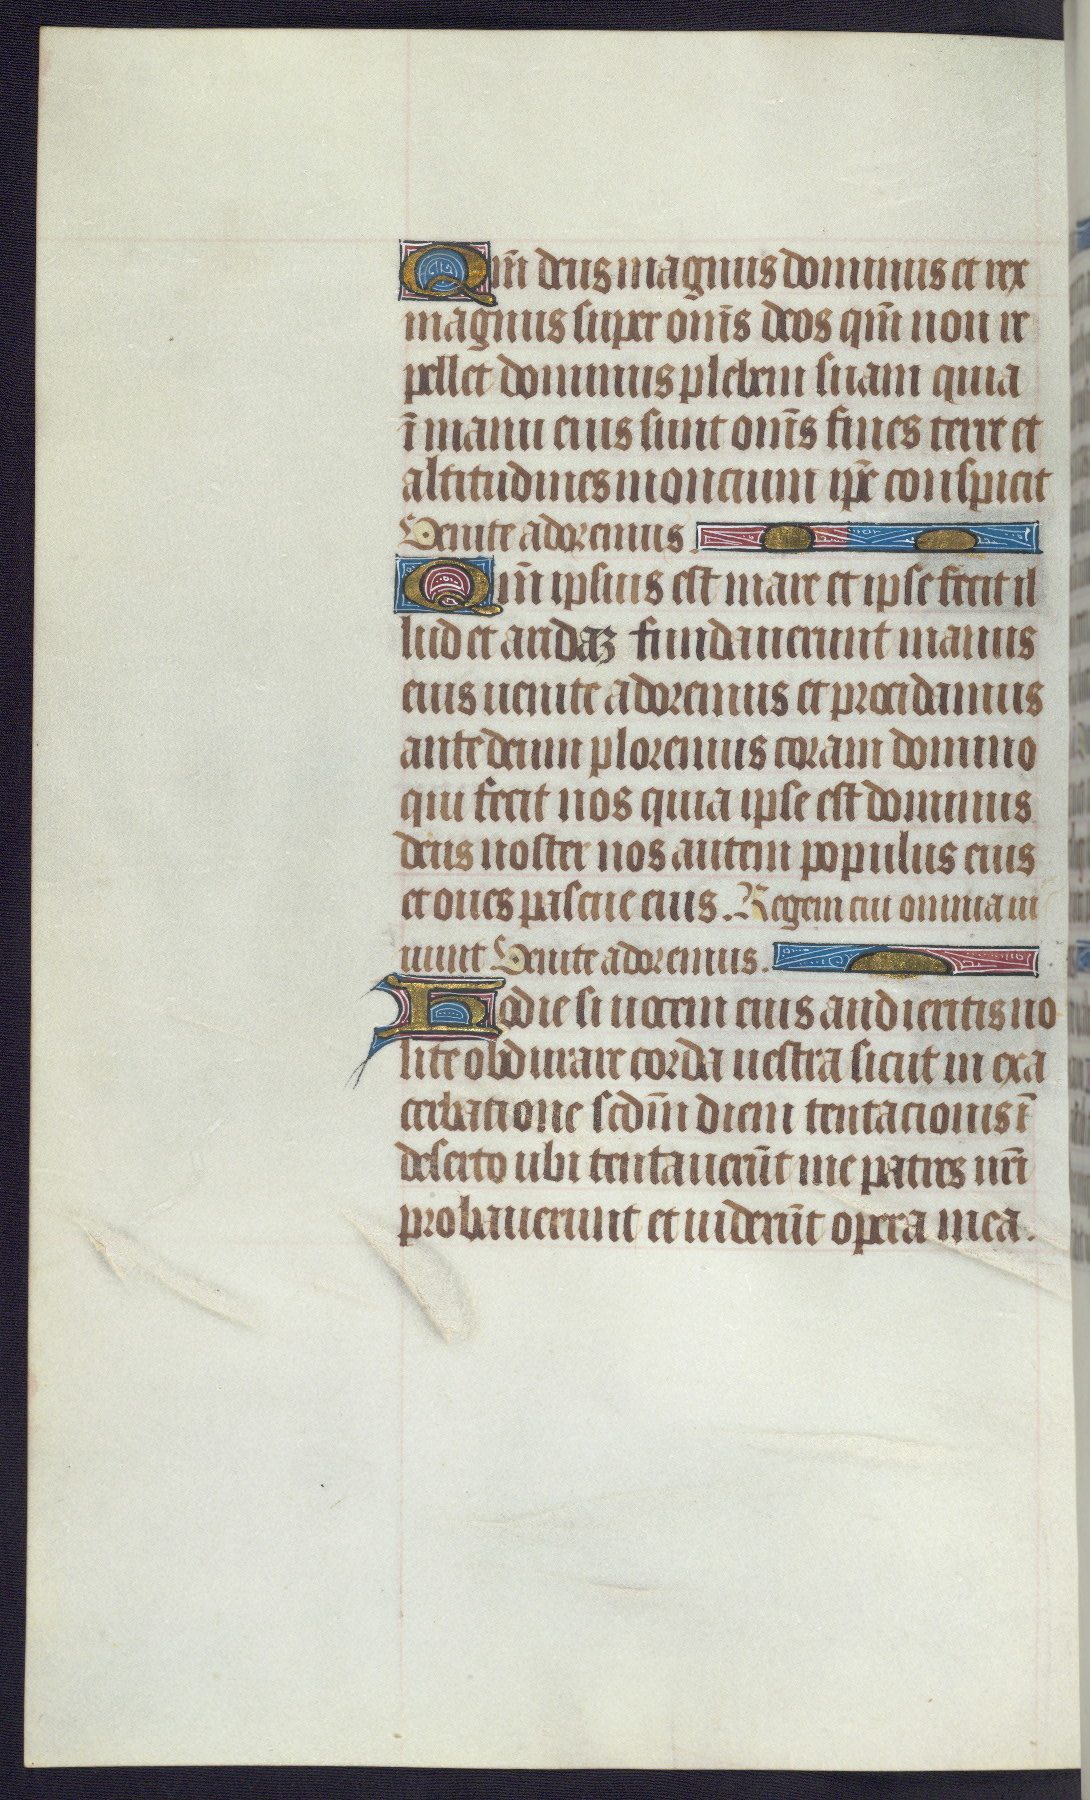 Qm̄ deus magnus dominus et rex
magnus super om̄s deos qm̄ non re
pellet dominus plebem suam quia
ī manu eius sunt om̄s fines terre et
altitudines moncium ip̄e conspicit
Venite adoremus.
Qm̄ ipsius est mare et ipse fecit il
lud et aridaꝫ fundauerunt manus
eius uenite adoremus et procidamus
ante deum ploremus coram domino
qui fecit nos quia ipse est dominus
deus noster nos autem populus eius
et oues pascue eius. Regem cui omnia ui
uunt Venite adoremus.
Hodie si uocem eius audieritis no
lite obdurare corda uestra sicut in exa
cerbatione scdm̄ diem temtacionis ī
deserto ubi temtauerūt me patres nr̄i
probauerunt et uiderūt opera mea.